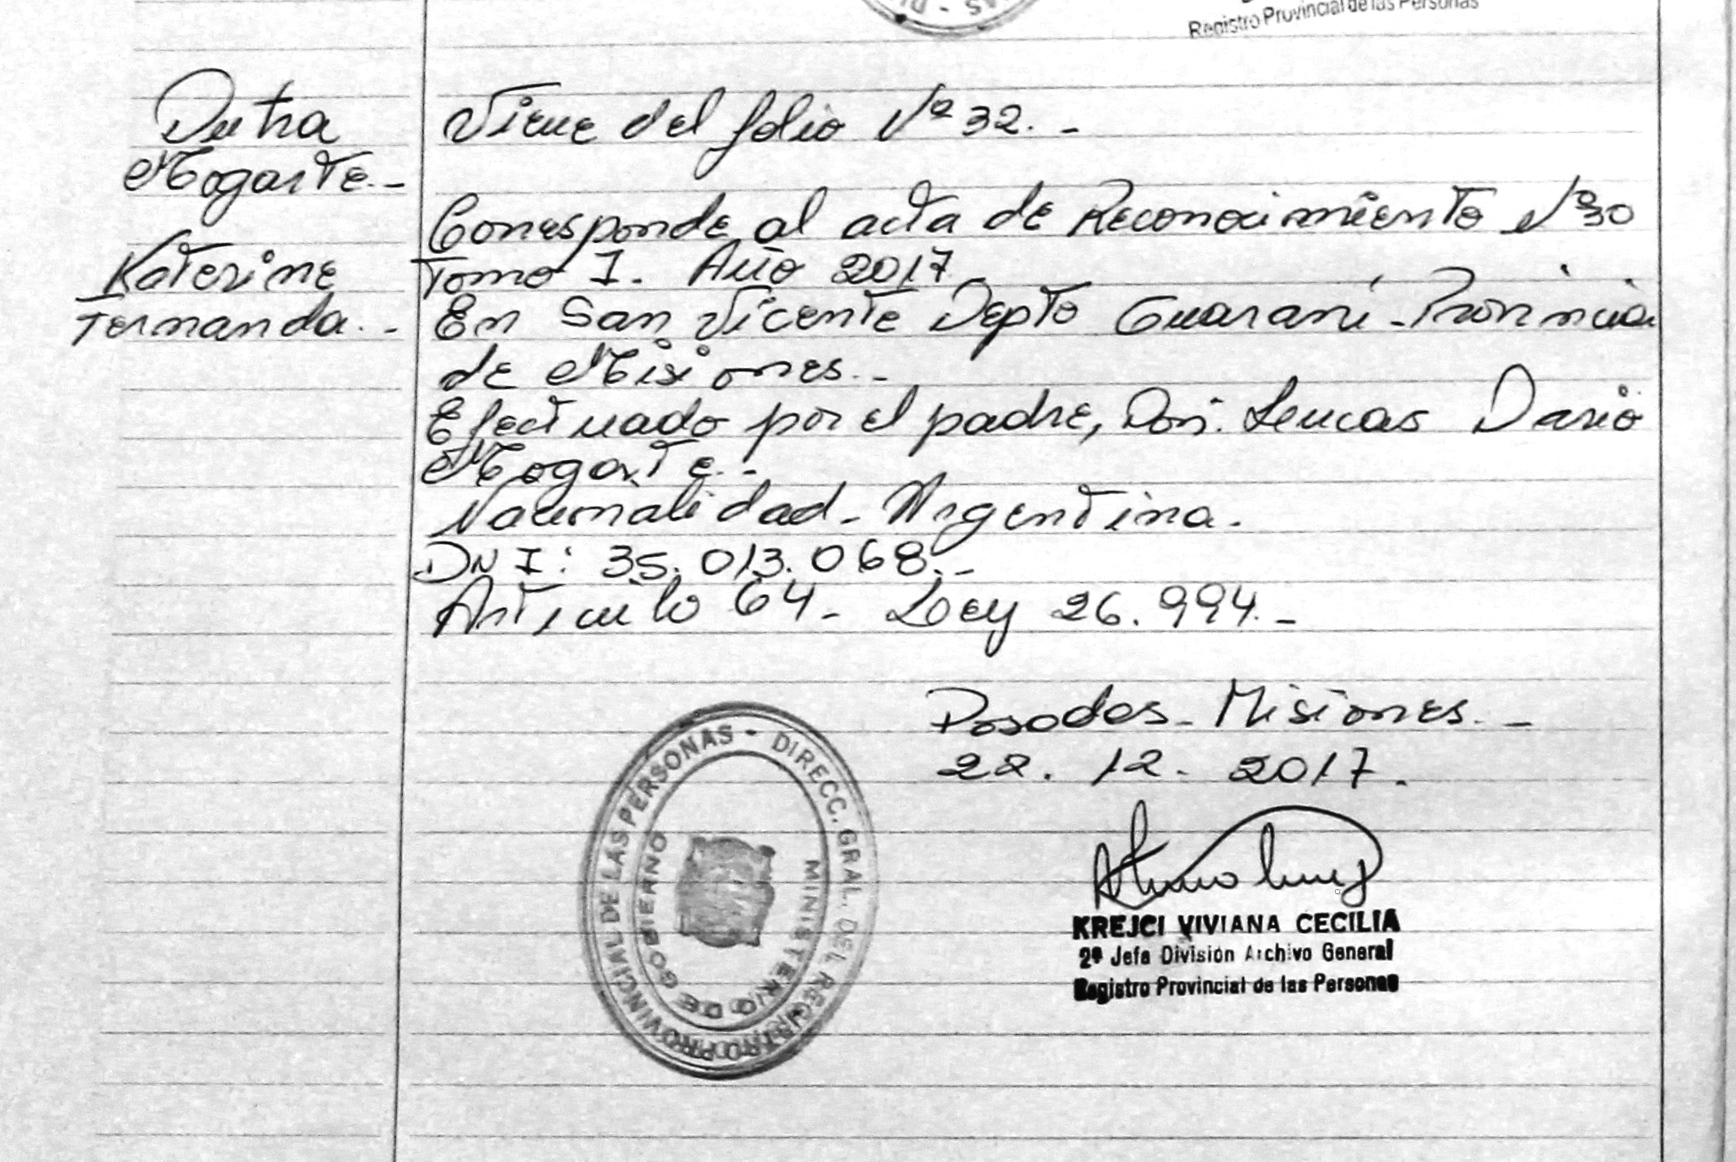 Registro Provincial de las Personas
Dutra
Mogarte.-
Katerine
Fernanda.-
Viene del folio Nº 32.-
Corresponde al acta de Reconocimiento Nº 30
Tomo I. Año 2017
En San Vicente Depto Guaraní - Provincia
de Misiones.-
Efectuado por el padre, Don. Lucas Dario
Mogarte.-
Nacionalidad - Argentina.
DNI: 35.013.068.-
Artículo 64 - Ley 26.994.-
Posadas - Misiones.-
22.12.2017.
DIRECC. GRAL. DEL REGISTRO PROVINCIAL DE LAS PERSONAS -
MINISTERIO DE GOBIERNO
KREJCI VIVIANA CECILIA
2º Jefa División Archivo General
Registro Provincial de las Personas